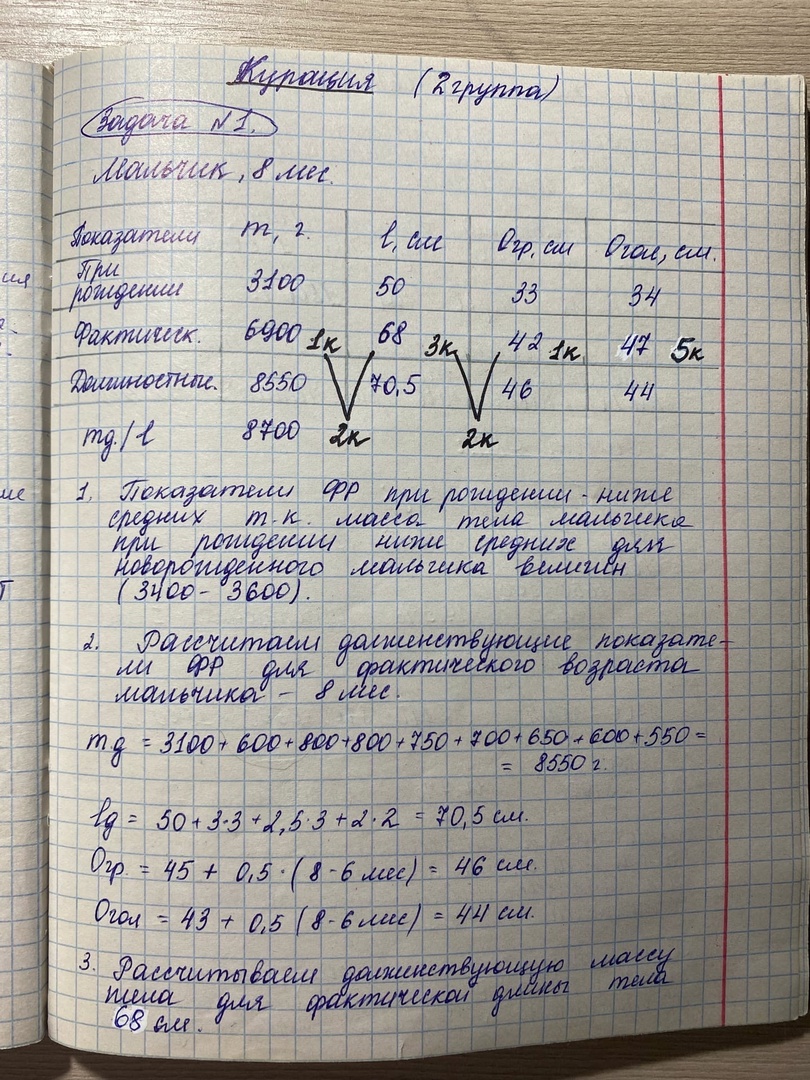 Курация (2группа)
Задача №1.
Мальчик, 8 мес.
Показатели m, г. l, см Огр, см Огол, см.
При рождении 3100 50 33 34
Фактическ. 6900 1к 68 3к 42 1к 47 5к
Долшностные. 8550 70,5 46 44
mд./l 8700 2к 2к
1. Показатели ФР при рождении - ниже
средних т.к. масса тела мальчика
при рождении ниже средних для
новорожденного мальчика величин
(3400 - 3600).
2. Рассчитаем долженствующие показате-
ли ФР для фактического возраста
мальчика - 8 мес.
mд = 3100 + 600 + 800 + 800 + 750 + 700 + 650 + 600 + 550 =
= 8550 г.
lд = 50 + 3·3 + 2,5·3 + 2·2 = 70,5 см.
Огр. = 45 + 0,5·(8-6 мес) = 46 см.
Огол = 43 + 0,5 (8-6 мес) = 44 см.
3. Рассчитываем долженствующую массу
тела для фактической длины тела
68 см.